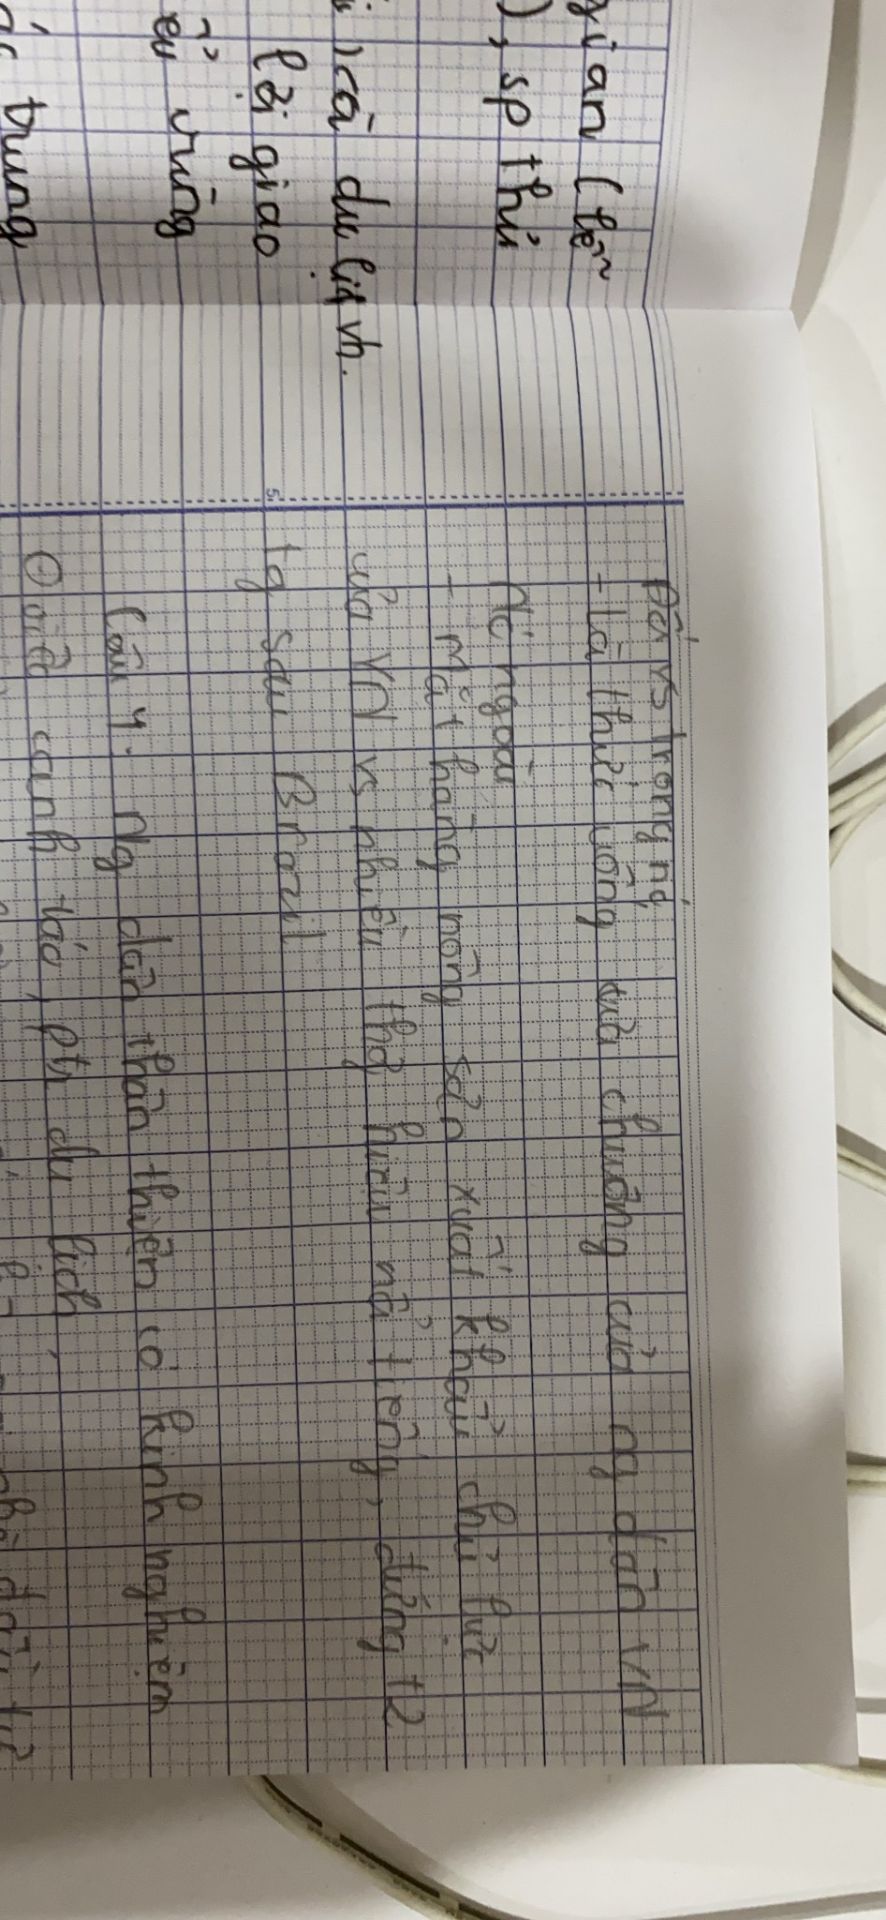 gian (lễ
), sp thủ
) cả du lịch.
lời giao
ểu vùng
trung
Đối vs trong nc
- Là thức uống ưa chuộng của ng dân VN
Nc ngoài
- mặt hàng nông sản xuất khẩu chủ lực
của VN vs nhiều thg hiệu nổi tiếng, đứng t2
tg sau Brazil
Câu 4. Ng dân thân thiện có kinh nghiệm
canh tác, ptr du lịch